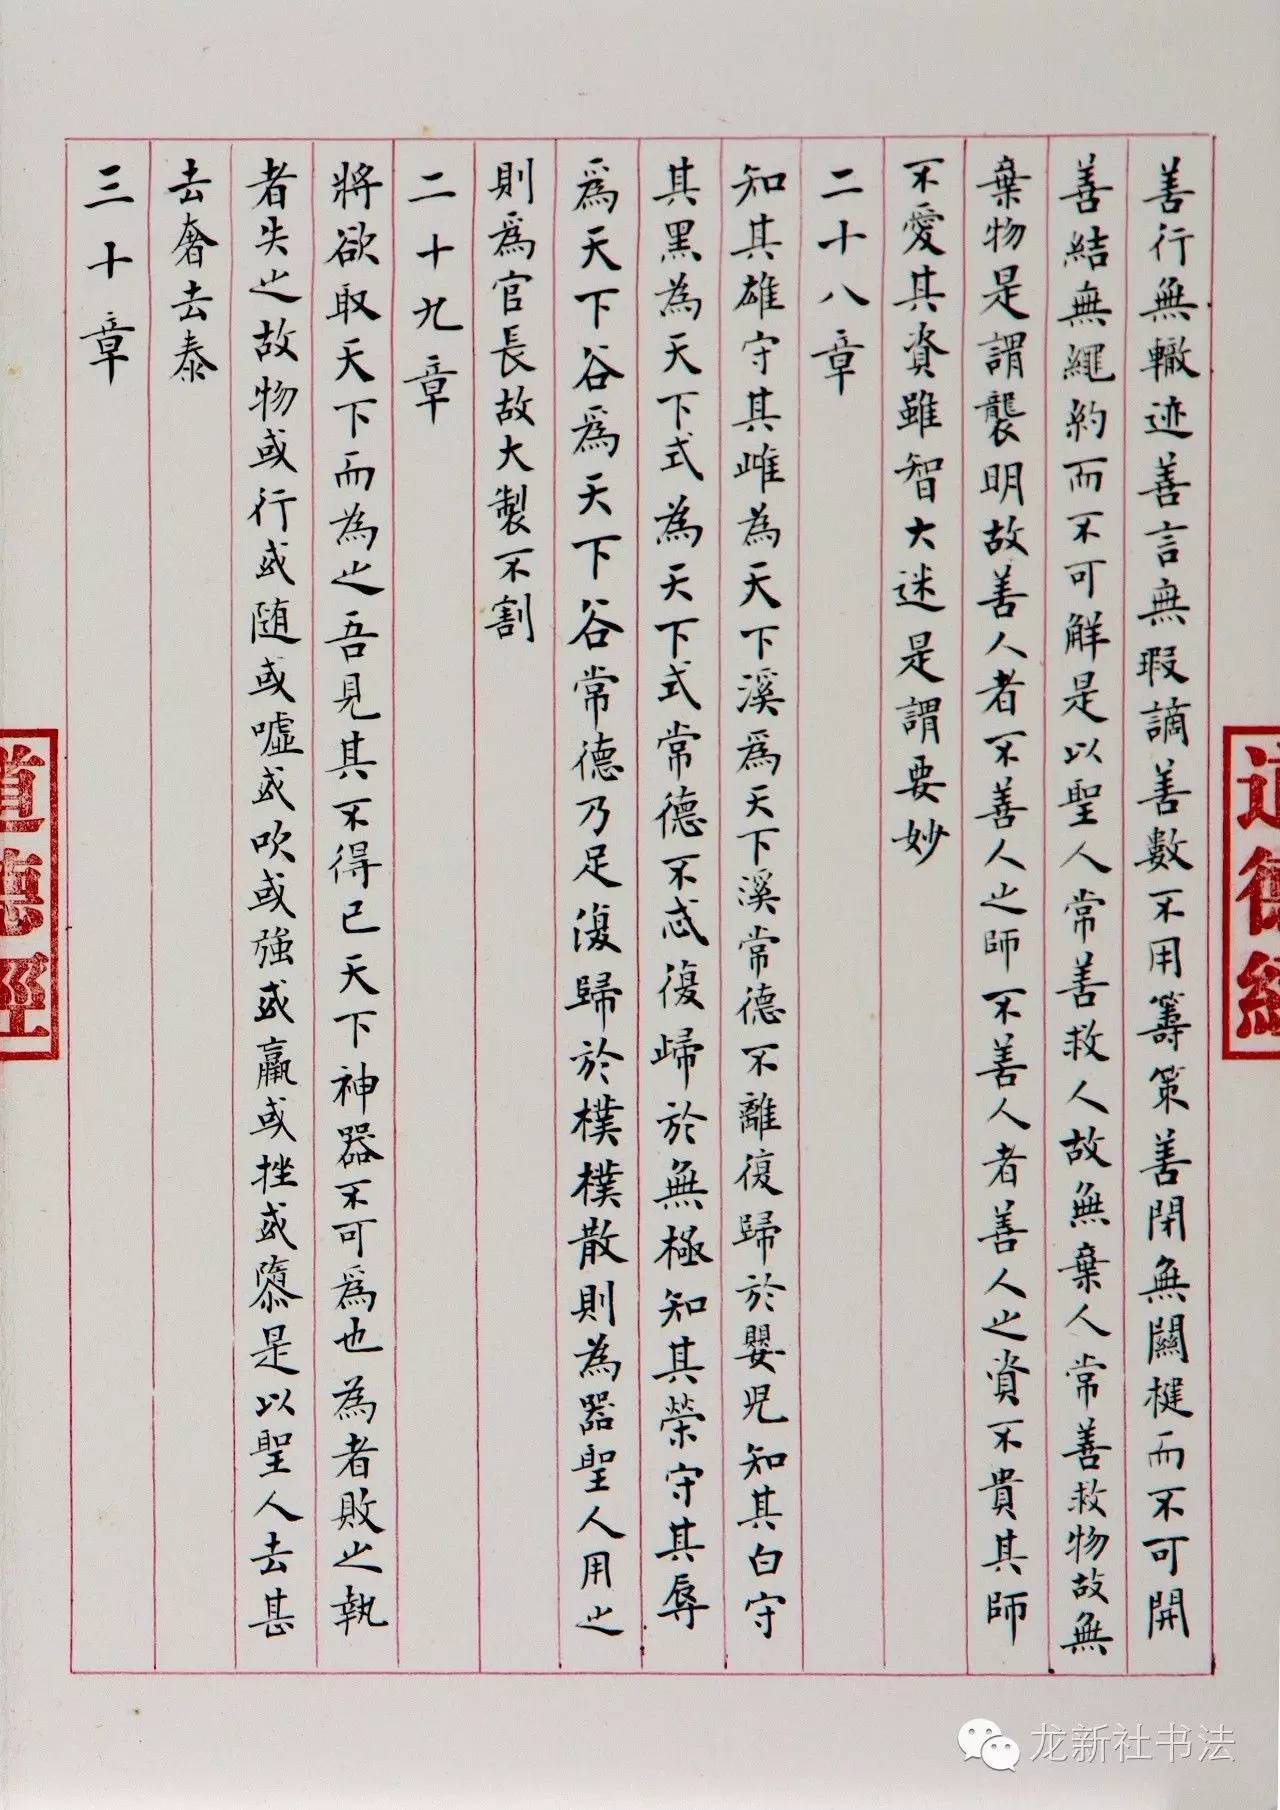 善行無轍迹善言無瑕謫善數不用籌策善閉無關楗而不可開
善結無繩約而不可解是以聖人常善救人故無棄人常善救物故無
棄物是謂襲明故善人者不善人之師不善人者善人之資不貴其師
不愛其資雖智大迷是謂要妙
二十八章
知其雄守其雌為天下溪爲天下溪常德不離復歸於嬰児知其白守
其黑為天下式為天下式常德不忒復歸於無極知其榮守其辱
爲天下谷爲天下谷常德乃足復歸於樸樸散則為器聖人用之
則爲官長故大製不割
二十九章
將欲取天下而為之吾見其不得已天下神器不可爲也為者敗之執
者失之故物或行或随或噓或吹或強或羸或挫或隳是以聖人去甚
去奢去泰
三十章
道德經
道德經
龙新社书法